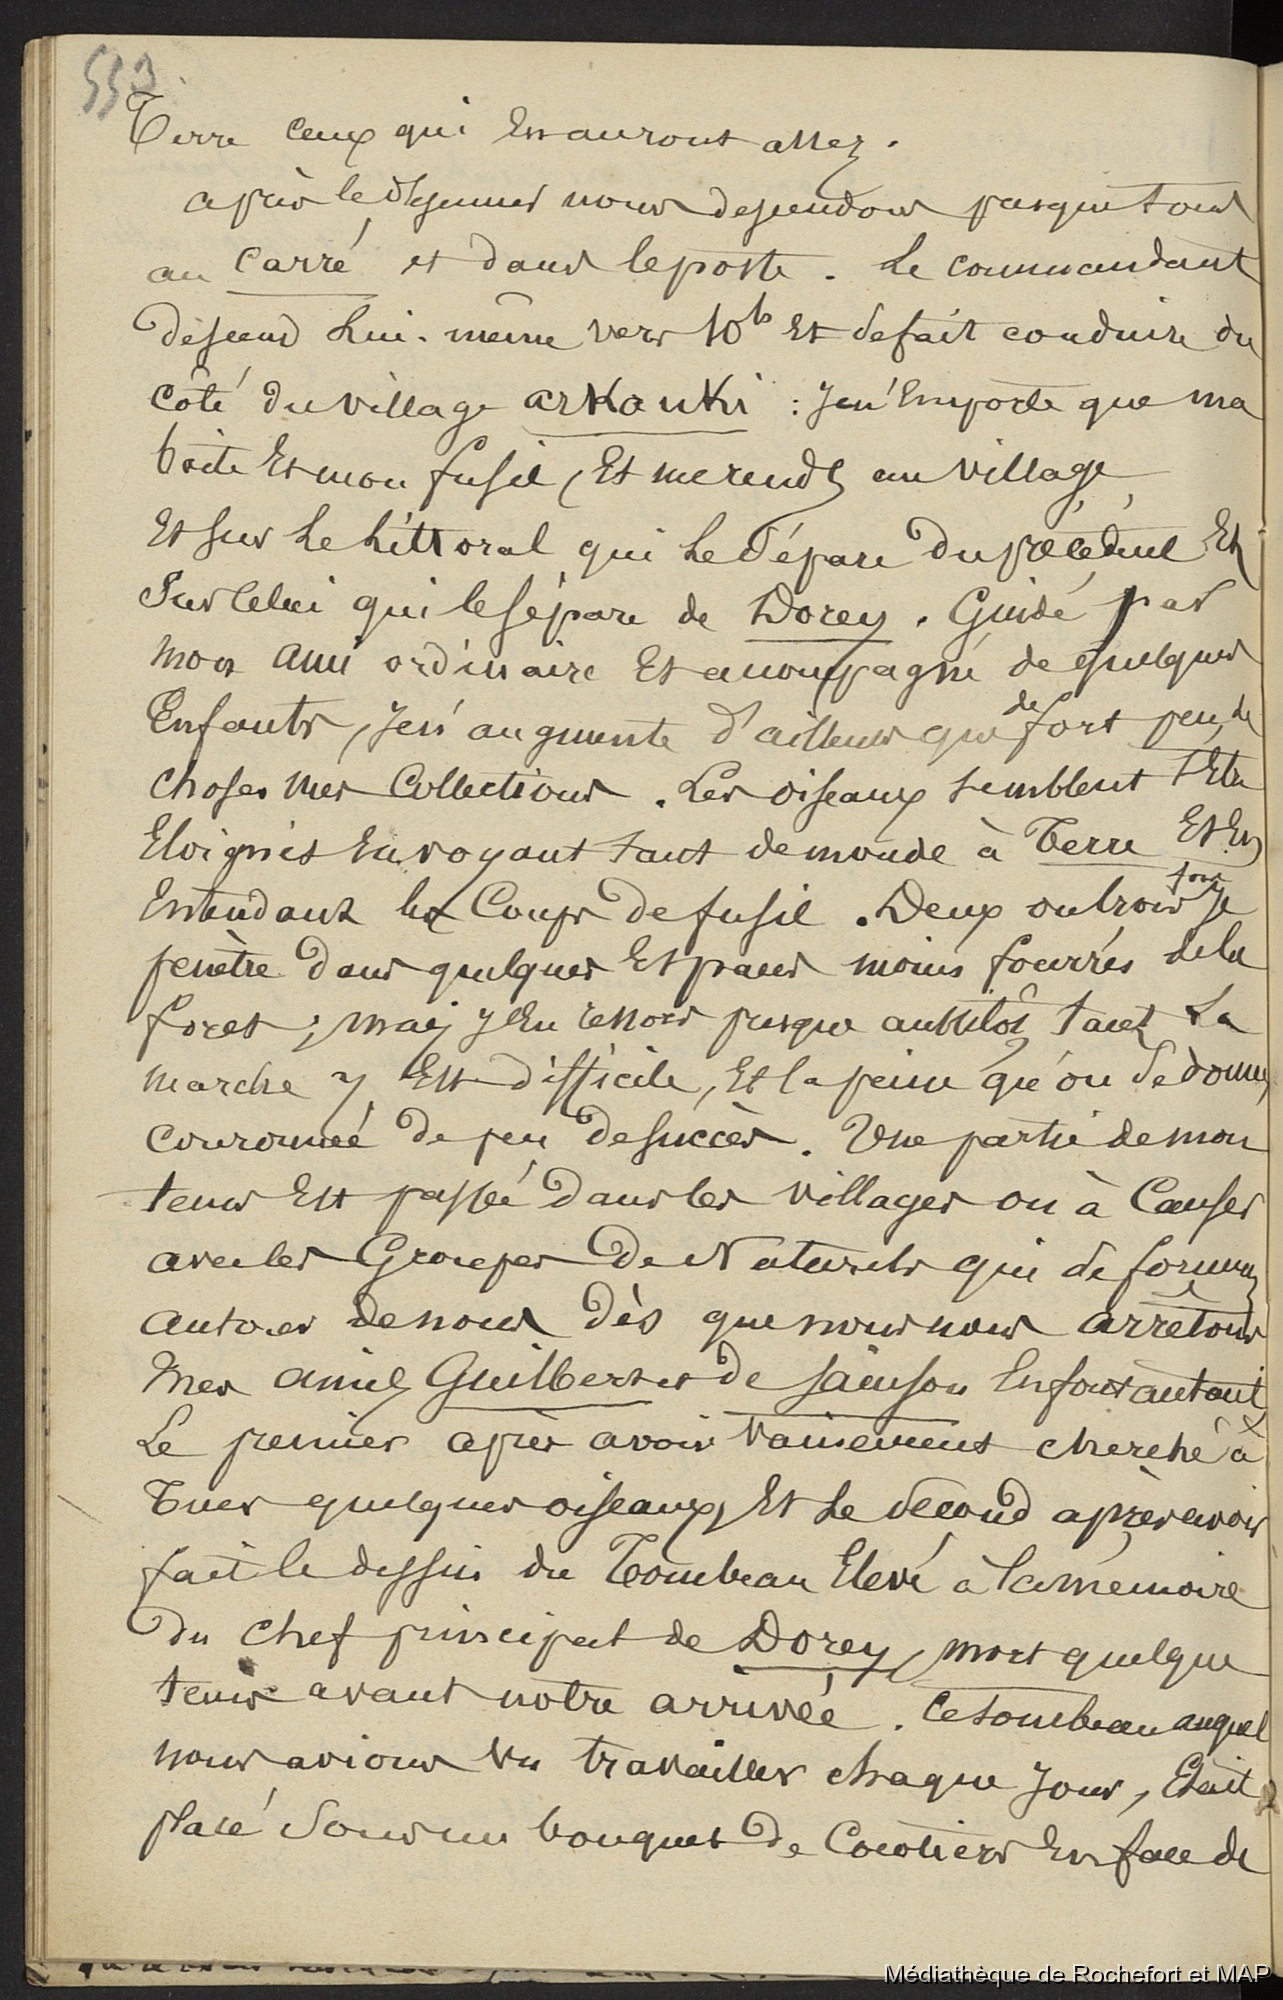 553.
Terre ceux qui en auront assez.
après le déjeuner nous descendons presque tous
au Carré et dans le poste. Le commandant
descend lui-même vers 10h et se fait conduire du
côté du village arkouki : Je n'emporte que ma
boite et mon fusil, et me rends au village
et sur le littoral qui le sépare du précédent et
sur celui qui le sépare de Dorey. Guidé par
mon ami ordinaire et accompagné de quelques
Enfants, je n'augmente d'ailleurs que de fort peu de
choses mes Collections. Les oiseaux semblent s'être
Eloignés en voyant tant de monde à Terre et en
Entendant les Coups de fusil. Deux ou trois fois je
penètre dans quelques Espaces moins fourrés de la
foret ; mais j'en ressors presque aussitôt tant la
marche y est difficile, et la peine qu'on se donne
couronnée de peu de succès. Une partie de mon
tems est passée dans les villages ou à Causer
avec les Groupes de Naturels qui se forment
autour de nous dès que nous nous arrêtons
Mes amis Guilbert et de Sainson en font autant
Le premier après avoir vainement cherché à
Tuer quelques oiseaux, et le second après avoir
fait le dessin du Tombeau Elevé à la mémoire
du chef principal de Dorey, mort quelque
tems avant notre arrivée. Ce tombeau auquel
nous avions vu travailler chaque jour, Etait
placé sous un bouquet de Cocotiers en face de
Médiathèque de Rochefort et MAP